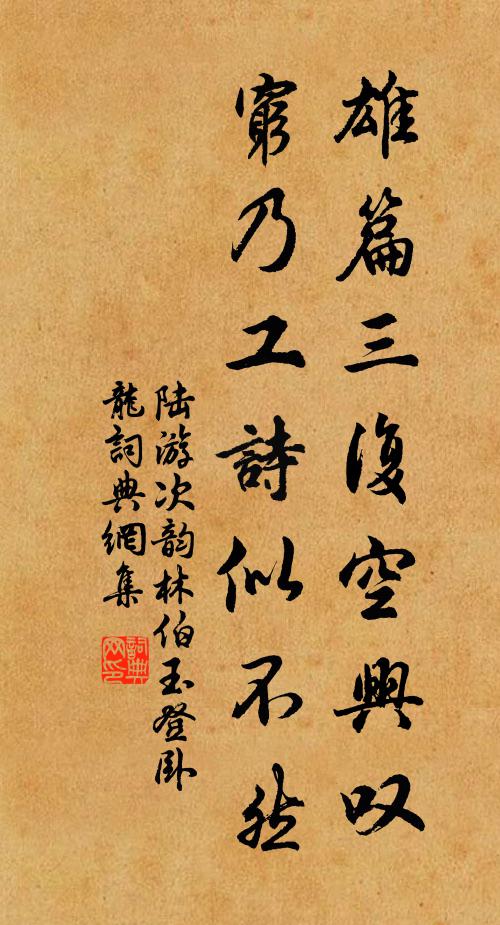 雄篇三復空興叹
窮乃工詩似不然
陆游次韵林伯玉登卧
龍詞典網集
詞典
网印